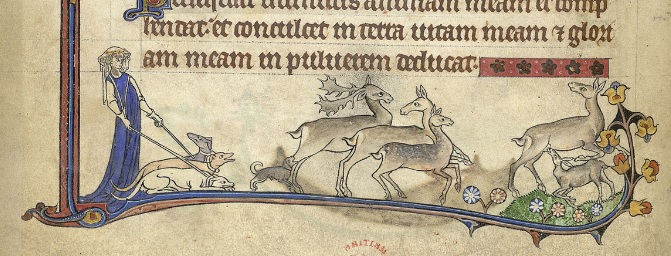 Persequatur inimicus animam meam et comp
hendat: et conculcet in terra uitam meam ⁊ glori
am meam in puluerem deducat.